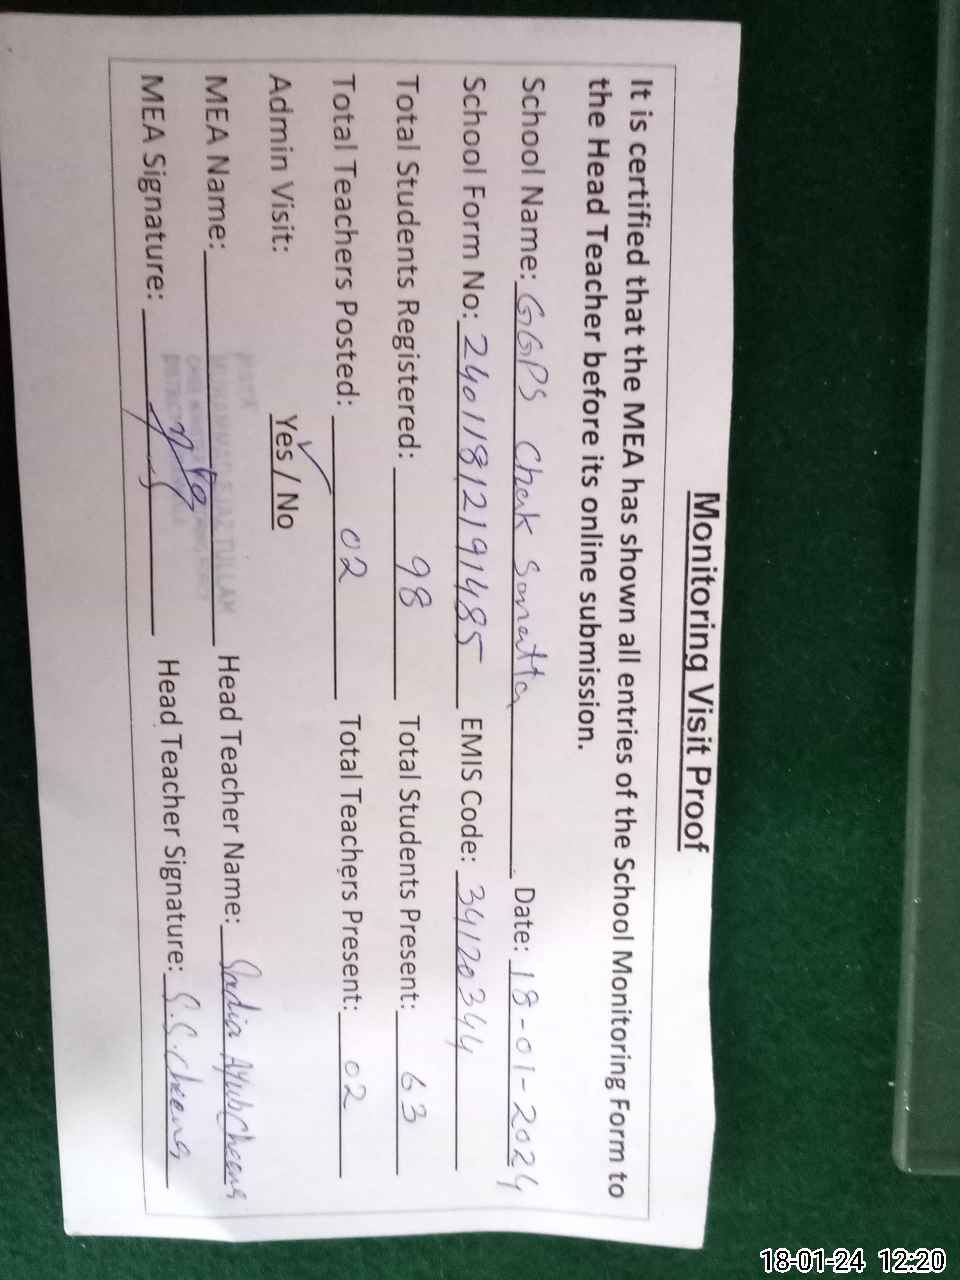 Monitoring Visit Proof
It is certified that the MEA has shown all entries of the School Monitoring Form to
the Head Teacher before its online submission.
School Name: GGPS Chak Sonatta Date: 18-01-2024
School Form No: 24011812191485 EMIS Code: 34120344
Total Students Registered: 98 Total Students Present: 63
Total Teachers Posted: 02 Total Teachers Present: 02
Admin Visit: Yes / No
MEA Name: Head Teacher Name: Sadia Ayub Cheena
MEA Signature: Head Teacher Signature: S.S.Cheena
18-01-24 12:20